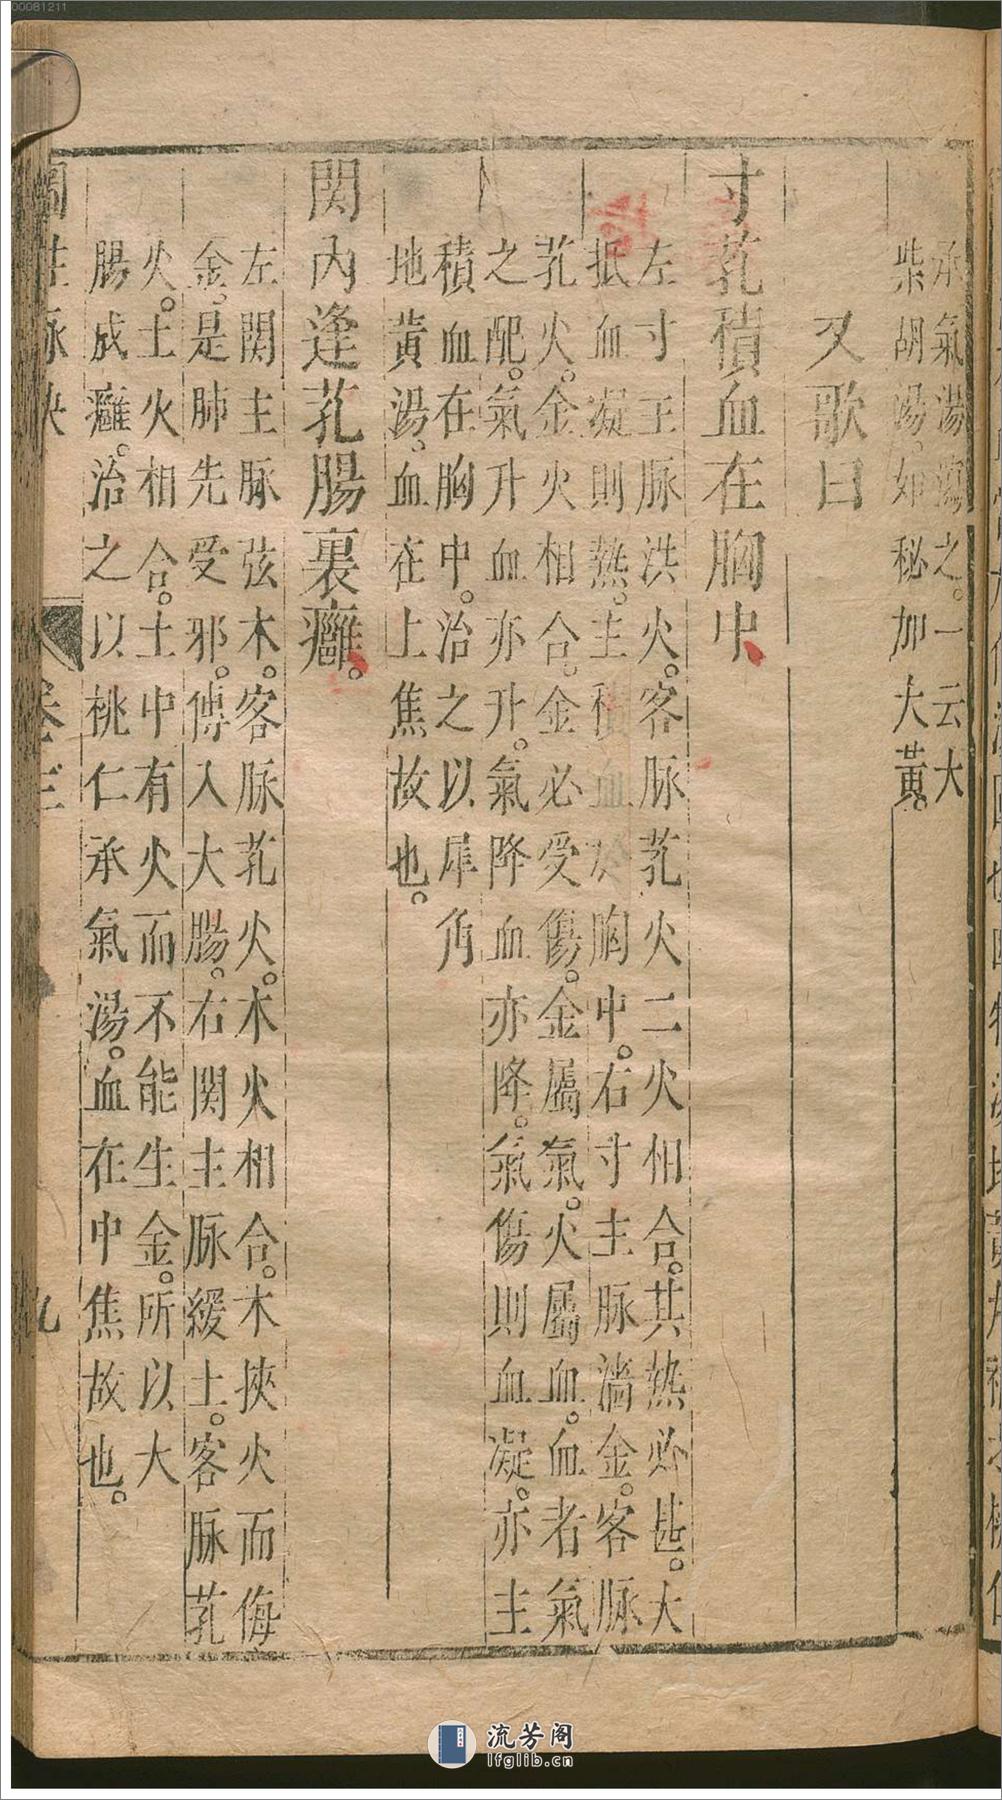 承氣湯瀉之。一云大
柴胡湯。如秘加大黃。
又歌曰
寸芤積血在胸中
左寸王脉洪火。客脉芤火二火相合。其热必甚。大
抵血凝則热。主積血於胸中。右寸主脉濇金。客脉
芤火。金火相合。金必受傷。金屬氣。火屬血。血者氣
之配。氣升血亦升。氣降血亦降。氣傷則血凝。亦主
積血在胸中。治之以犀角
地黃湯。血在上焦故也。
関內逢芤腸裏癰。
左関主脉弦木。客脉芤火。木火相合。木挾火而侮
金。是肺先受邪。傅入大腸。右関主脉緩土。客脉芤
火。土火相合。土中有火而不能生金。所以大
腸成癰。治之以桃仁承氣湯。血在中焦故也。
圖註脉決
卷三
九
00081211
流芳阁
lfglib.cn